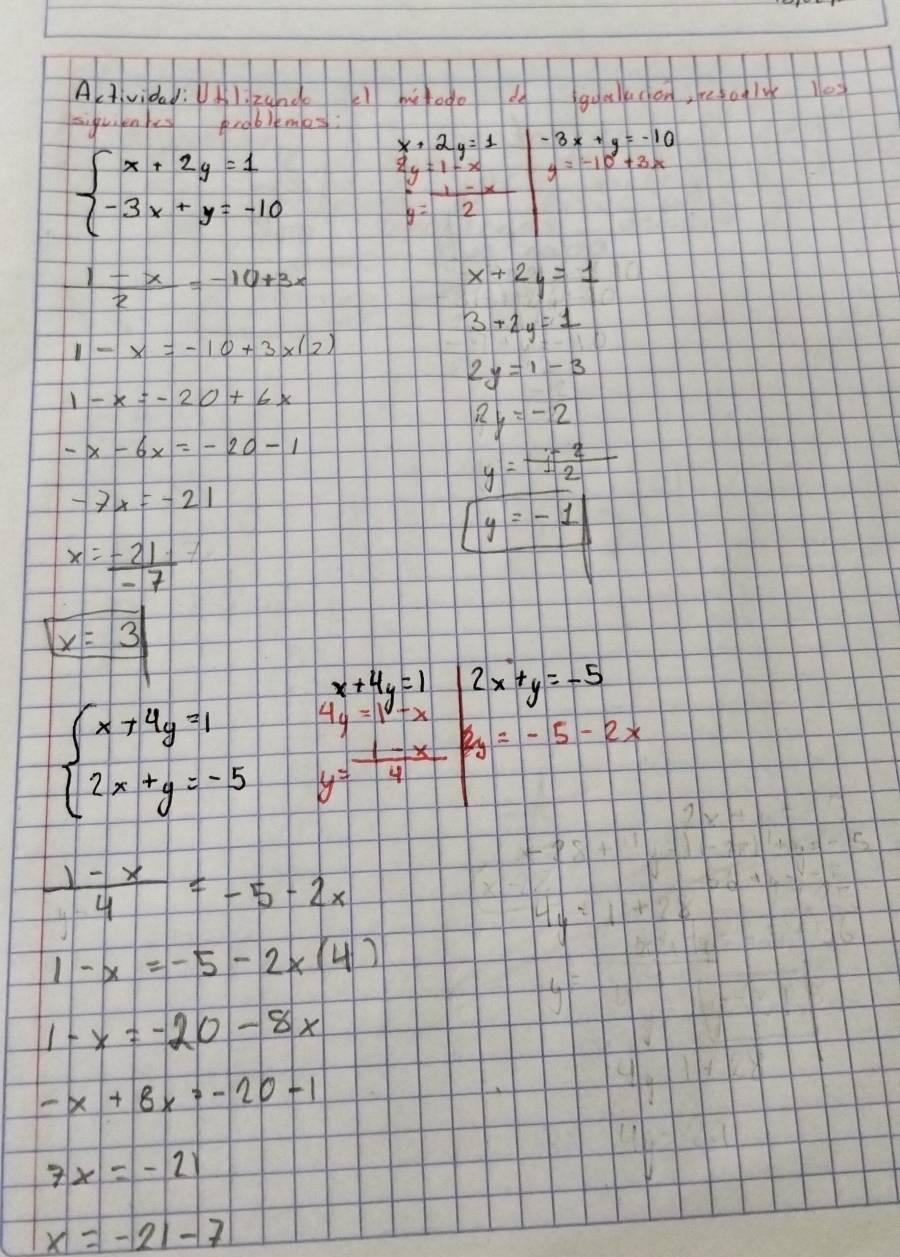 Actividad: Utilizando el método de igualación, resuelve los
siguientes problemas:
x + 2y = 1
-3x + y = -10
x + 2y = 1
2y = 1 - x
y = 1 - x / 2
-3x + y = -10
y = -10 + 3x
1 - x / 2 = -10+3x
1 - x = -10 + 3x(2)
1 - x = -20 + 6x
-x - 6x = -20 - 1
-7x = -21
x = -21 / -7
x = 3
x + 2y = 1
3 + 2y = 1
2y = 1 - 3
2y = -2
y = -2 / 2
y = -1
x + 4y = 1
2x + y = -5
x + 4y = 1
4y = 1 - x
y = 1 - x / 4
2x + y = -5
y = -5 - 2x
1 - x / 4 = -5 - 2x
1 - x = -5 - 2x(4)
1 - x = -20 - 8x
-x + 8x = -20 - 1
7x = -21
x = -21 - 7
4y = 1 + 28
y =